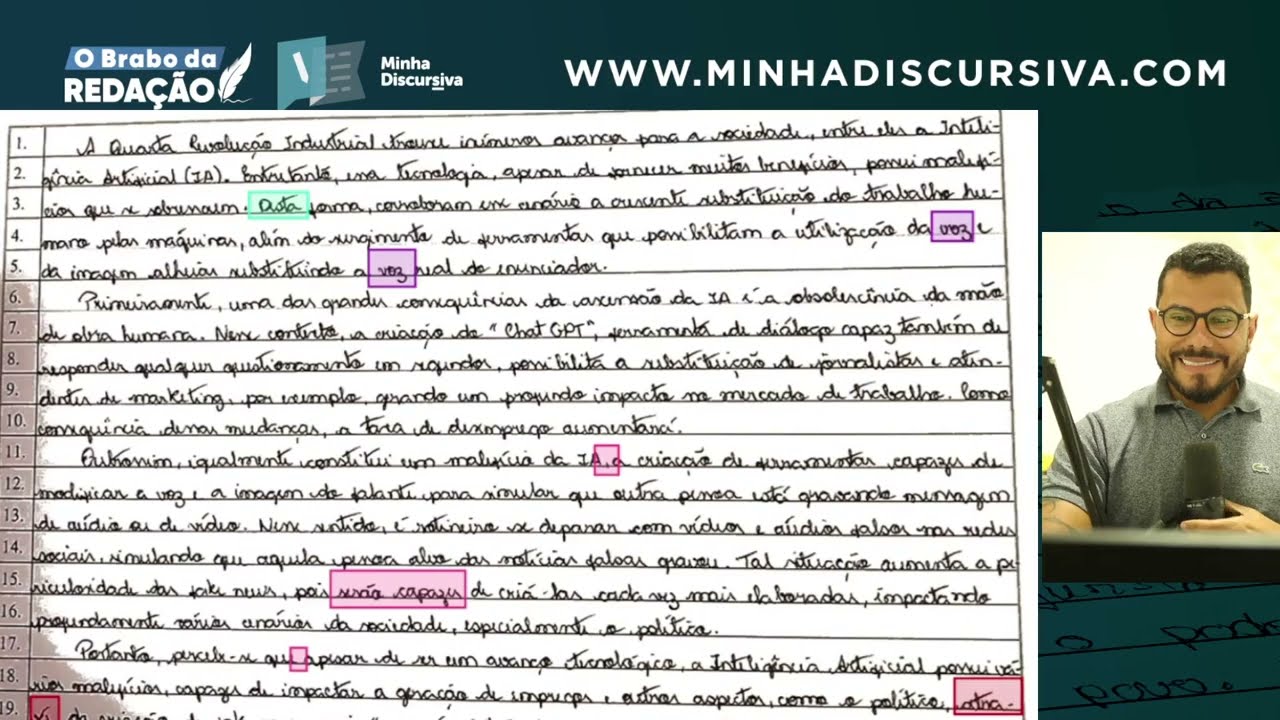 O Brabo da
REDAÇÃO
Minha
Discursiva
WWW.MINHADISCURSIVA.COM
1. A Quarta Revolução Industrial trouxe inúmeros avanços para a sociedade, entre eles a Inteli-
2. gência Artificial (IA). Entretanto, essa tecnologia, apesar de fornecer muitos benefícios, possui malefí-
3. cios que se sobressaem. Desta forma, corroboram esse cenário a crescente substituição do trabalho hu-
4. mano pelas máquinas, além do surgimento de ferramentas que possibilitam a utilização da voz e
5. da imagem alheias substituindo a voz real do enunciador.
6. Primeiramente, uma das grandes consequências da ascensão da IA é a obsolescência da mão
7. de obra humana. Nesse contexto, a criação do "Chat GPT", ferramenta de diálogo capaz também de
8. responder qualquer questionamento em segundos, possibilita a substituição de jornalistas e aten-
9. dentes de marketing, por exemplo, gerando um profundo impacto no mercado de trabalho. Como
10. consequência dessas mudanças, a taxa de desemprego aumentará.
11. Outrossim, igualmente constitui um malefício da IA, a criação de ferramentas capazes de
12. modificar a voz e a imagem do falante, para simular que outra pessoa está gravando mensagem
13. de áudio ou de vídeo. Nesse sentido, é rotineiro se deparar com vídeos e áudios falsos nas redes
14. sociais, simulando que aquela pessoa alvo das notícias falsas gravou. Tal situação aumenta a pe-
15. riculosidade das fake news, pois serão capazes de criá-las cada vez mais elaboradas, impactando
16. profundamente vários cenários da sociedade, especialmente o político.
17. Portanto, percebe-se que apesar de ser um avanço tecnológico, a Inteligência Artificial possui vá-
18. rios malefícios, capazes de impactar a geração de empregos e outros aspectos, como o político, atra-
19. vés da criação de fake news